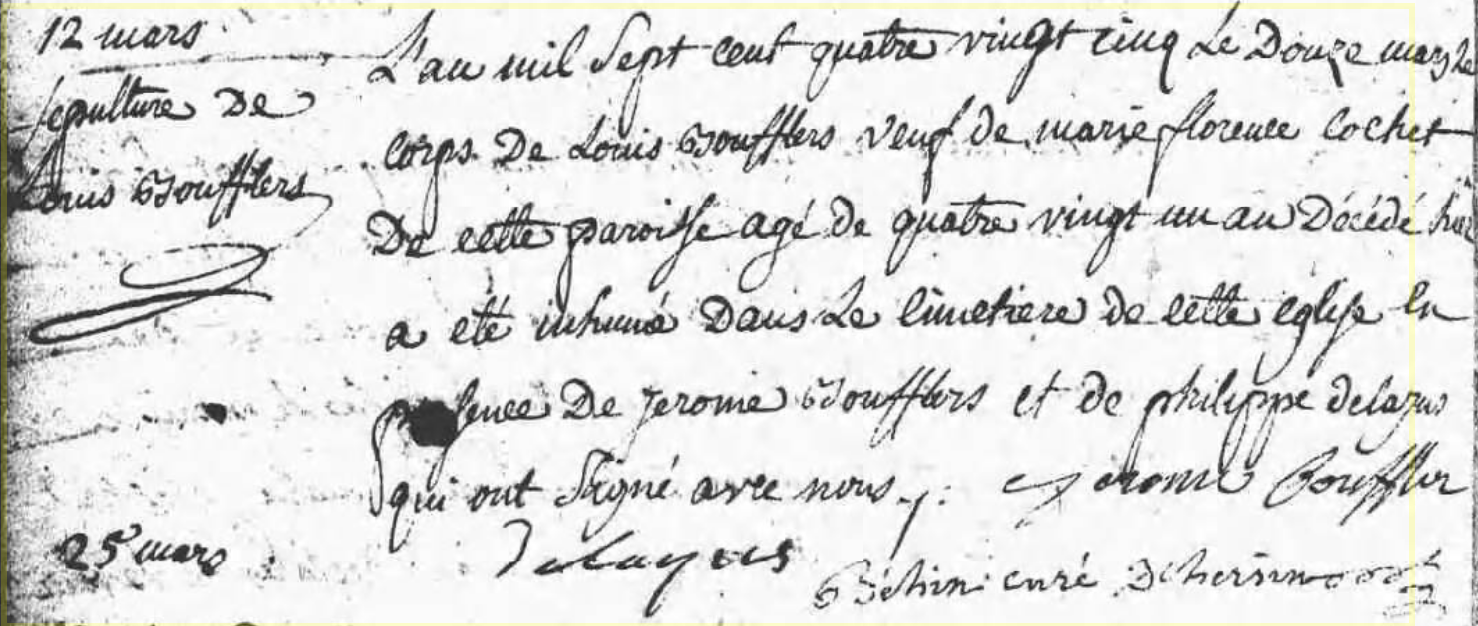 12 mars
Sepulture De
Louis Boufflers
L'an mil Sept cent quatre vingt cinq Le Douze mars Le
corps De Louis Boufflers veuf de marie florence Cochet
De cette paroisse agé de quatre vingt un an Décédé hier
a eté inhumé Dans Le Cimetiere de cette eglise En
presence De Jerome Boufflers et de philippe delayus
qui ont Signé avec nous ./. Jerome Boufflur
Delayens
Béthin curé
25 mars